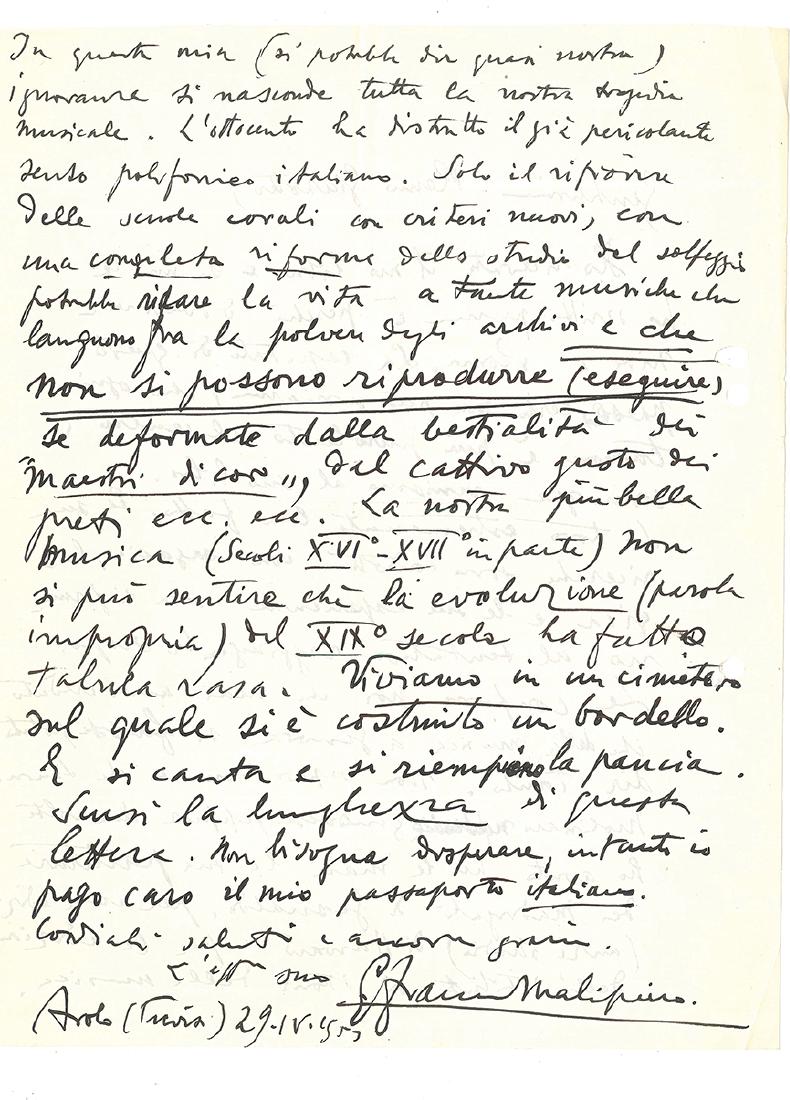 In questa mia (si potrebbe dir quasi nostra)
ignoranza si nasconde tutta la nostra tragedia
musicale. L'ottocento ha distrutto il già pericolante
senso polifonico italiano. Solo il rifiorire
delle scuole corali con criteri nuovi, con
una completa riforma dello studio del solfeggio
potrebbe ridare la vita a tante musiche che
languono fra la polvere degli archivi e che
non si possono riprodurre (eseguire)
se deformate dalla bestialità dei
"maestri di coro", dal cattivo gusto dei
preti ecc. ecc. La nostra più bella
musica (secoli XVI°-XVII° in parte) non
si può sentire chè la evoluzione (parola
impropria) del XIX° secolo ha fatto
tabula rasa. Viviamo in un cimitero
sul quale si è costruito un bordello.
E si canta e si riempiono la pancia.
Scusi la lunghezza di questa
lettera. Non bisogna disperare, intanto io
pago caro il mio passaporto italiano.
Cordiali saluti e ancora grazie.
L' suo GFrancesco Malipiero.
Asolo (Treviso) 29.IV.